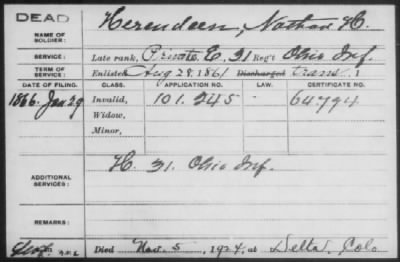 DEAD
NAME OF SOLDIER: Herendeen, Nathan H.
SERVICE: Late rank, Private E, 31 Reg't Ohio Inf.
TERM OF SERVICE: Enlisted Aug 28, 1861 Discharged trans, 1
DATE OF FILING. CLASS. APPLICATION NO. LAW. CERTIFICATE NO.
1866. Jan 29 Invalid, 101.245 - 64794
Widow,
Minor,
ADDITIONAL SERVICES: H. 31. Ohio Inf.
REMARKS:
Died Nov. 5, 1924, at Delta, Colo